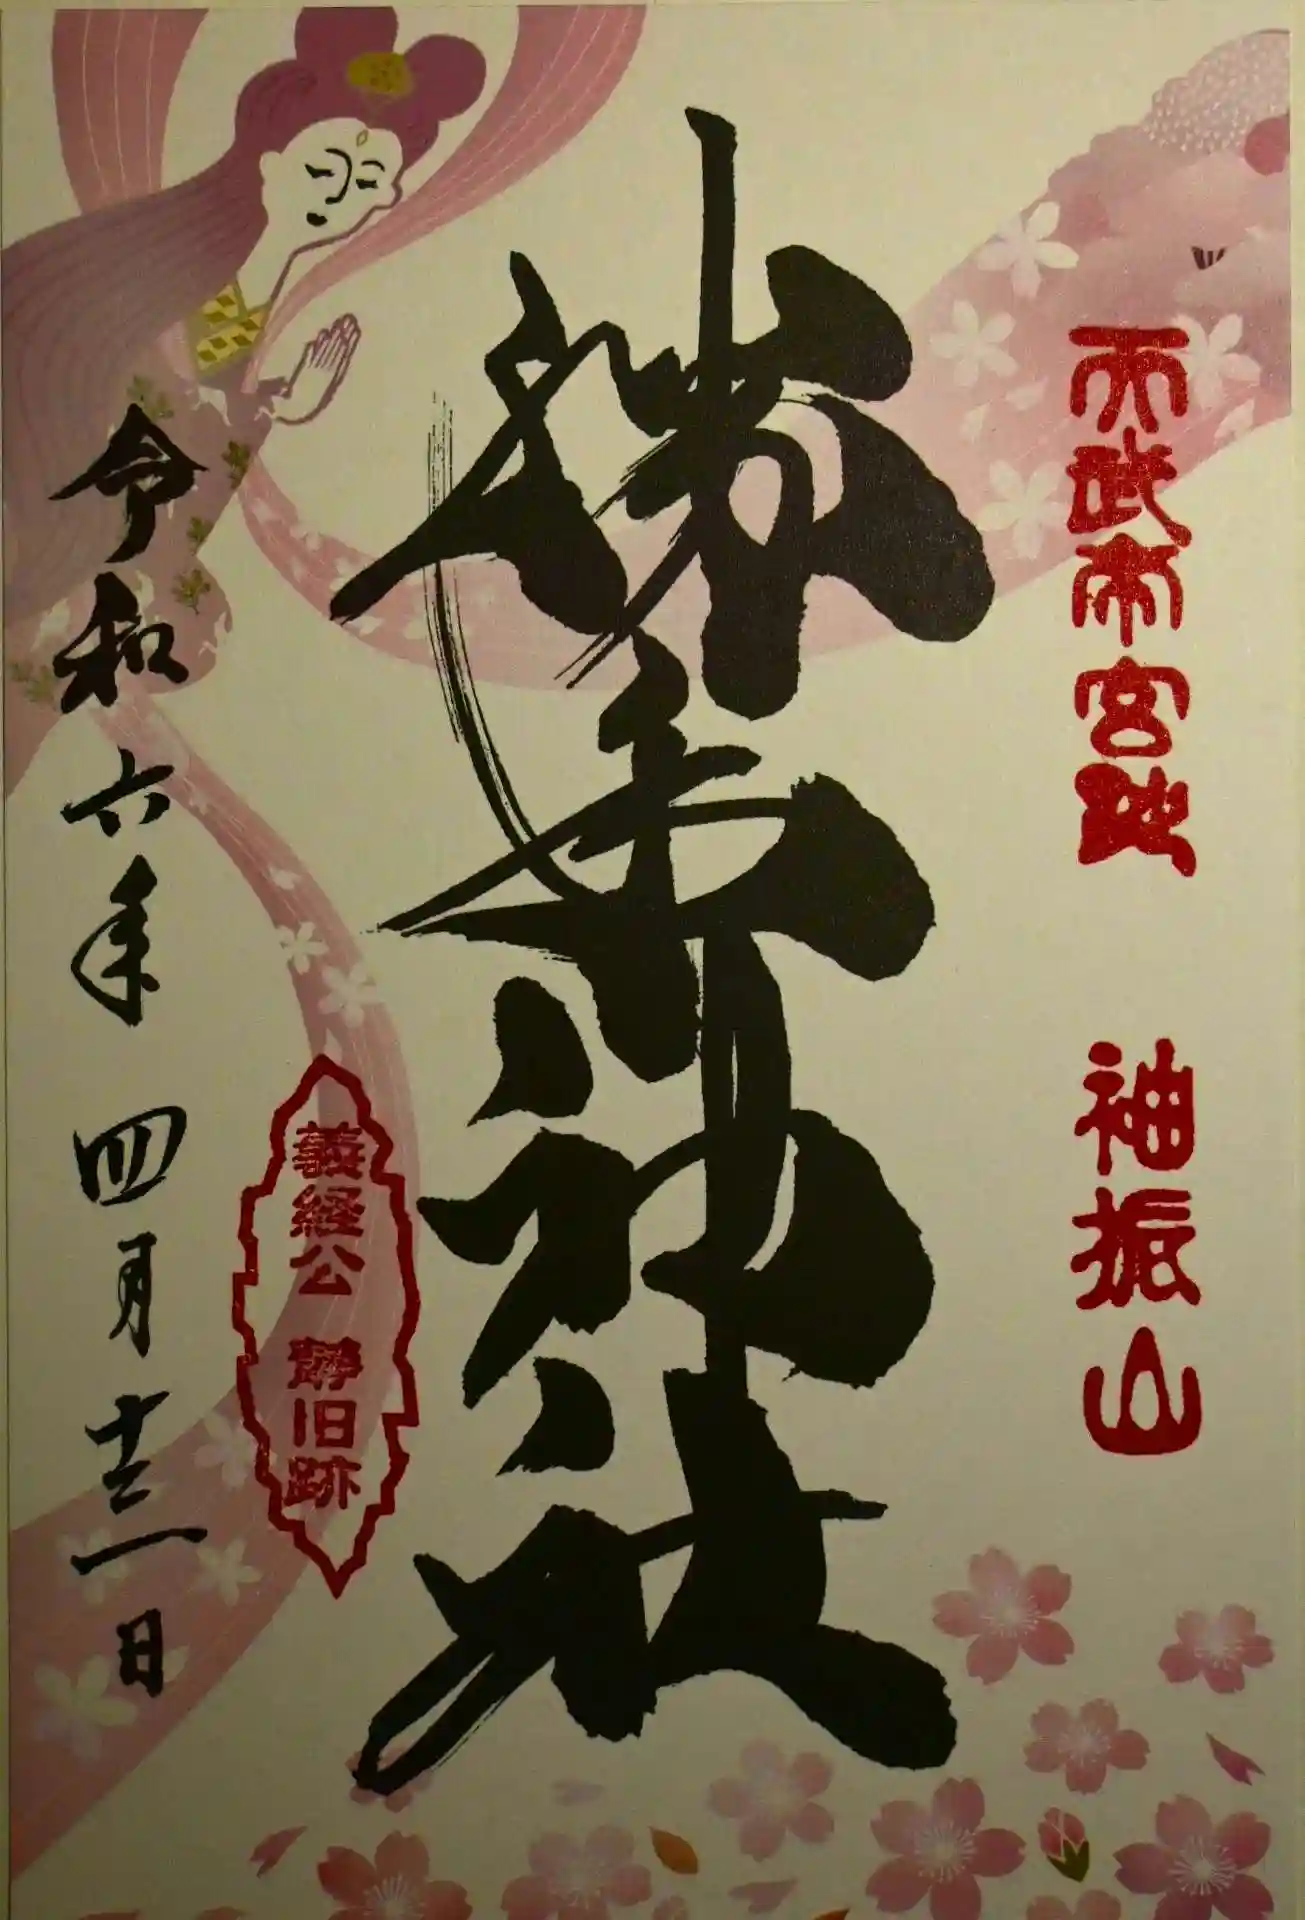 天武帝宮跡 袖振山
勝手神社
義経公 静旧跡
令和六年 四月十三日